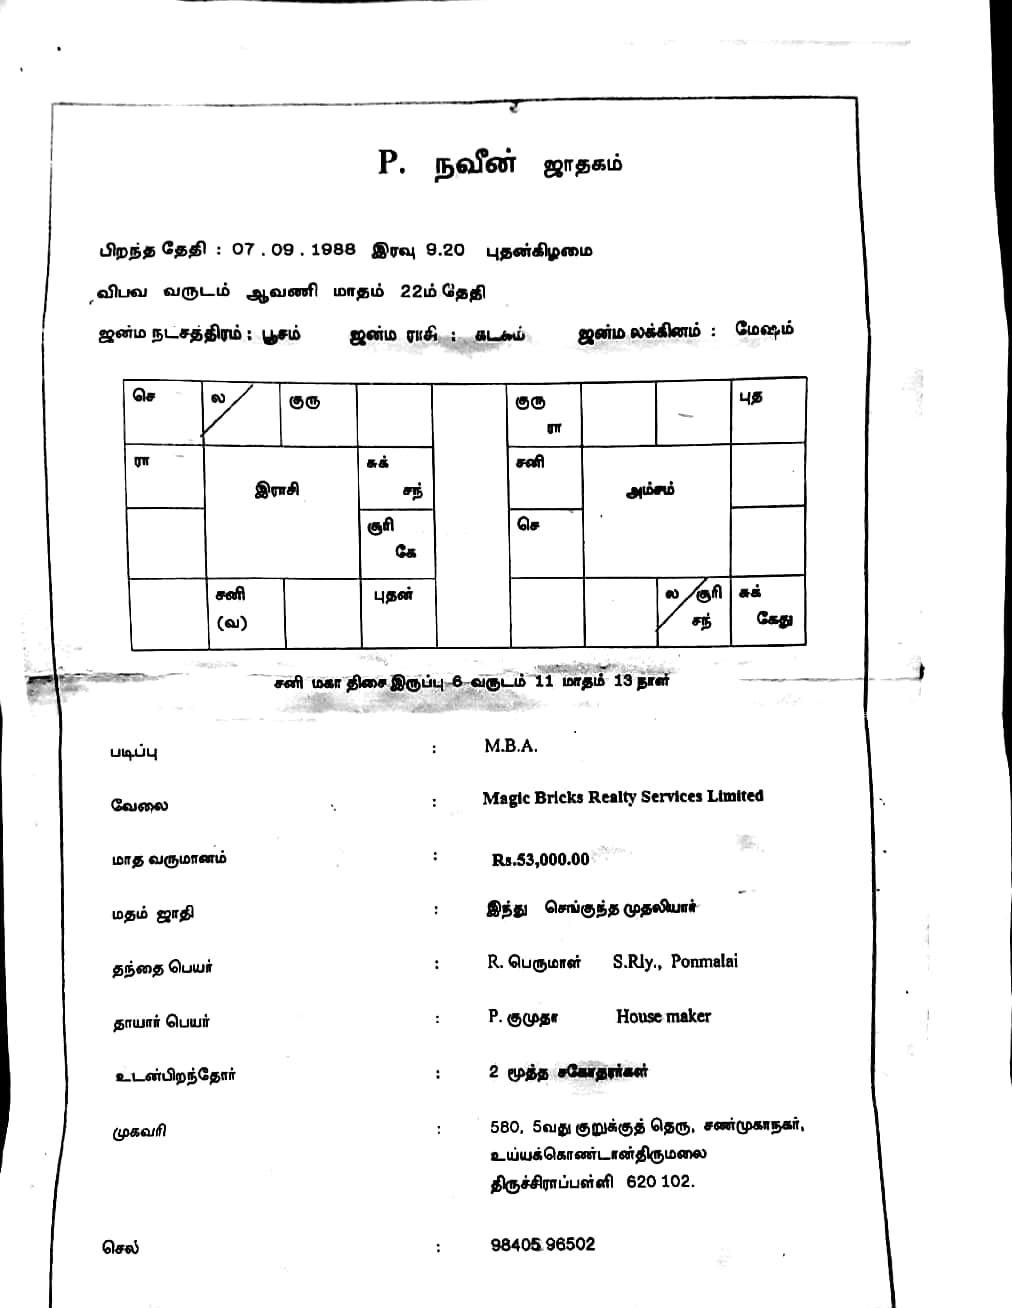 P. நவீன் ஜாதகம்
பிறந்த தேதி : 07 . 09 . 1988 இரவு 9.20 புதன்கிழமை
விபவ வருடம் ஆவணி மாதம் 22ம் தேதி
ஜன்ம நட்சத்திரம் : பூசம் ஜன்ம ராசி : கடகம் ஜன்ம லக்கினம் : மேஷம்
செ ல குரு குரு ரா புத
ரா சுக் சந் சனி
இராசி அம்சம்
சூரி கே செ
சனி (வ) புதன் ல சூரி சந் சுக் கேது
சனி மகா திசை இருப்பு 6 வருடம் 11 மாதம் 13 நாள்
படிப்பு : M.B.A.
வேலை : Magic Bricks Realty Services Limited
மாத வருமானம் : Rs.53,000.00
மதம் ஜாதி : இந்து செங்குந்த முதலியார்
தந்தை பெயர் : R. பெருமாள் S.Rly., Ponmalai
தாயார் பெயர் : P. குமுதா House maker
உடன்பிறந்தோர் : 2 மூத்த சகோதரர்கள்
முகவரி : 580, 5வது குறுக்குத் தெரு, சண்முகாநகர்,
உய்யக்கொண்டான்திருமலை
திருச்சிராப்பள்ளி 620 102.
செல் : 98405 96502